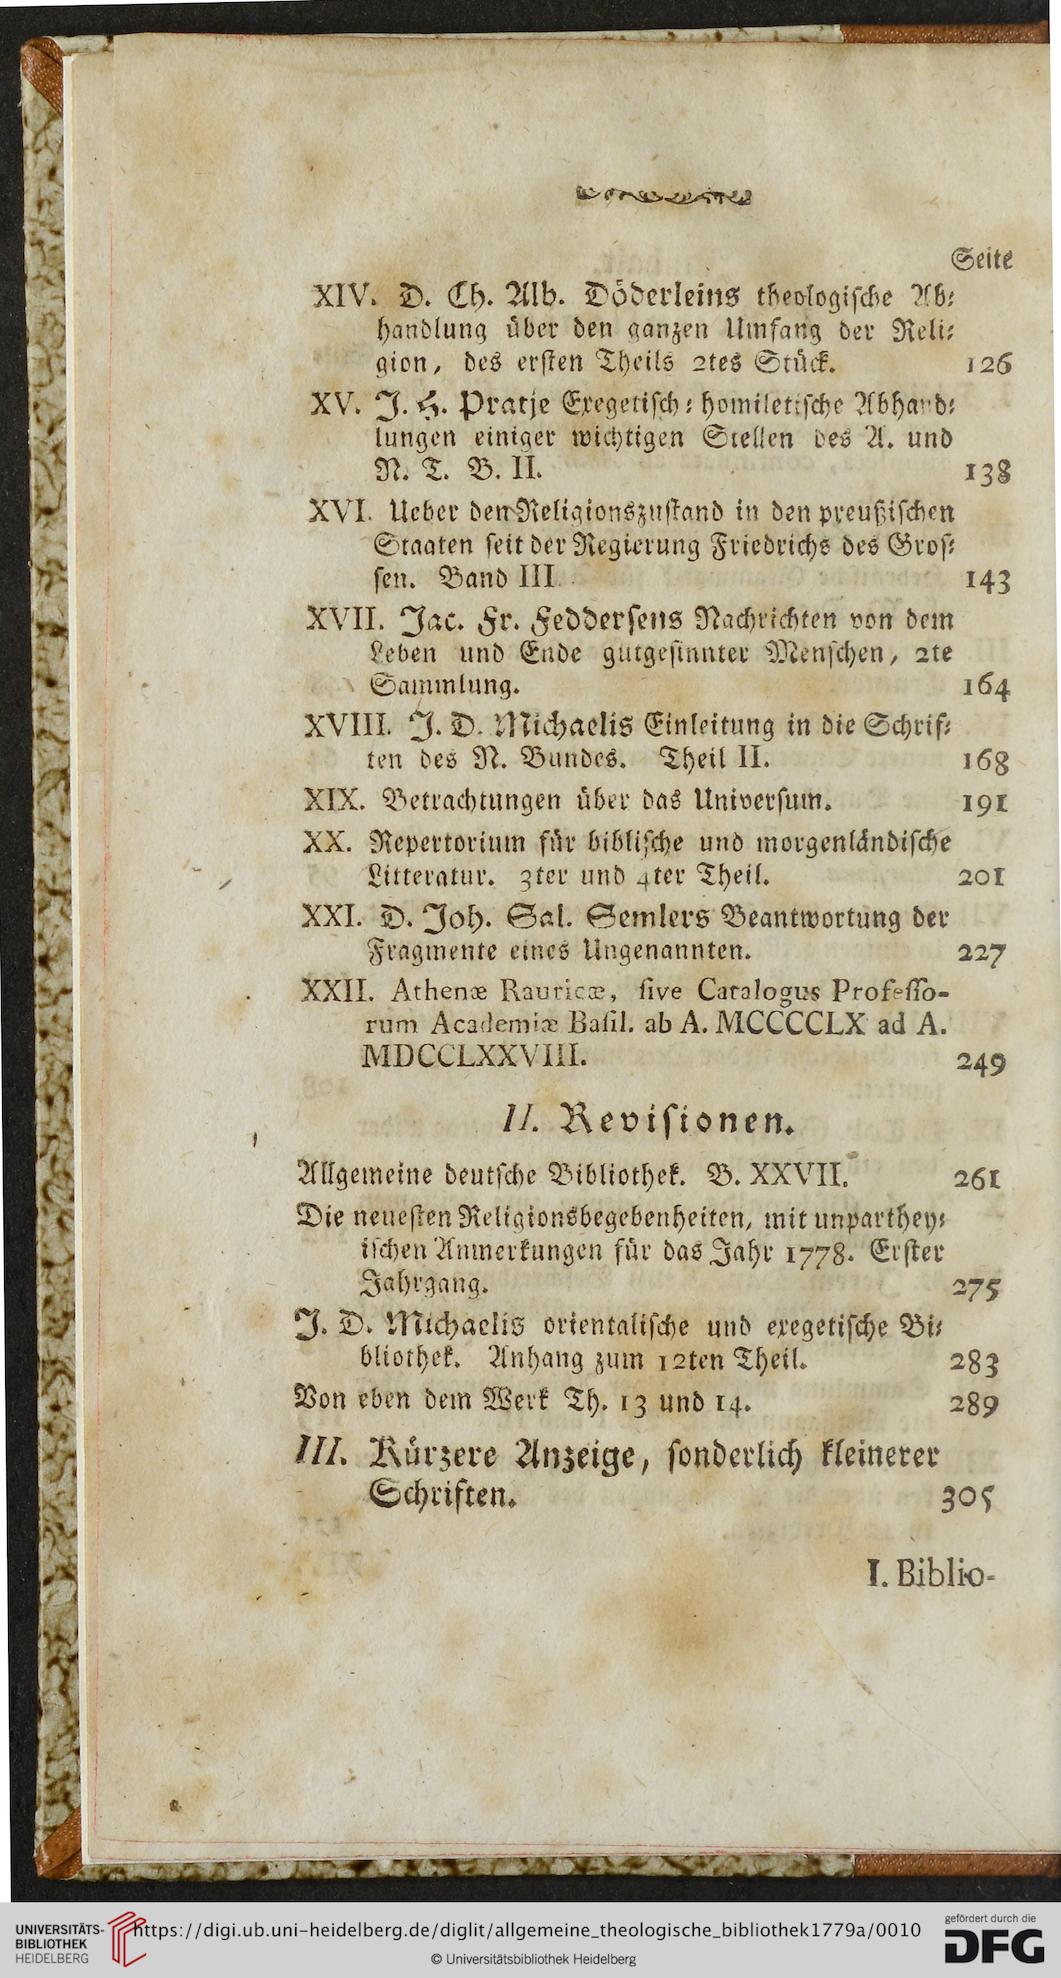 Seite
XIV. D. Ch. Alb. Döderleins theologische Ab⸗
handlung über den ganzen Umfang der Reli⸗
gion, des ersten Theils 2tes Stück. 126
XV. J. H. Pratje Exegetisch⸗homiletische Abhand⸗
lungen einiger wichtigen Stellen des A. und
N. T. B. II. 138
XVI. Ueber den Religionszustand in den preußischen
Staaten seit der Regierung Friedrichs des Gros⸗
sen. Band III. 143
XVII. Jac. Fr. Feddersens Nachrichten von dem
Leben und Ende gutgesinnter Menschen, 2te
Sammlung. 164
XVIII. J. D. Michaelis Einleitung in die Schrif⸗
ten des N. Bundes. Theil II. 168
XIX. Betrachtungen über das Universum. 191
XX. Repertorium für biblische und morgenländische
Litteratur. 3ter und 4ter Theil. 201
XXI. D. Joh. Sal. Semlers Beantwortung der
Fragmente eines Ungenannten. 227
XXII. Athenæ Rauricæ, ſive Catalogus Profeſſo-
rum Academiæ Baſil. ab A. MCCCCLX ad A.
MDCCLXXVIII. 249
II. Revisionen.
Allgemeine deutsche Bibliothek. B. XXVII. 261
Die neuesten Religionsbegebenheiten, mit unparthey⸗
ischen Anmerkungen für das Jahr 1778. Erster
Jahrgang. 275
J. D. Michaelis orientalische und exegetische Bi⸗
bliothek. Anhang zum 12ten Theil. 283
Von eben dem Werk Th. 13 und 14. 289
III. Kürzere Anzeige, sonderlich kleinerer
Schriften. 305
I. Biblio-
UNIVERSITÄTS-
BIBLIOTHEK
HEIDELBERG
https://digi.ub.uni-heidelberg.de/diglit/allgemeine_theologische_bibliothek1779a/0010
© Universitätsbibliothek Heidelberg
gefördert durch die
DFG